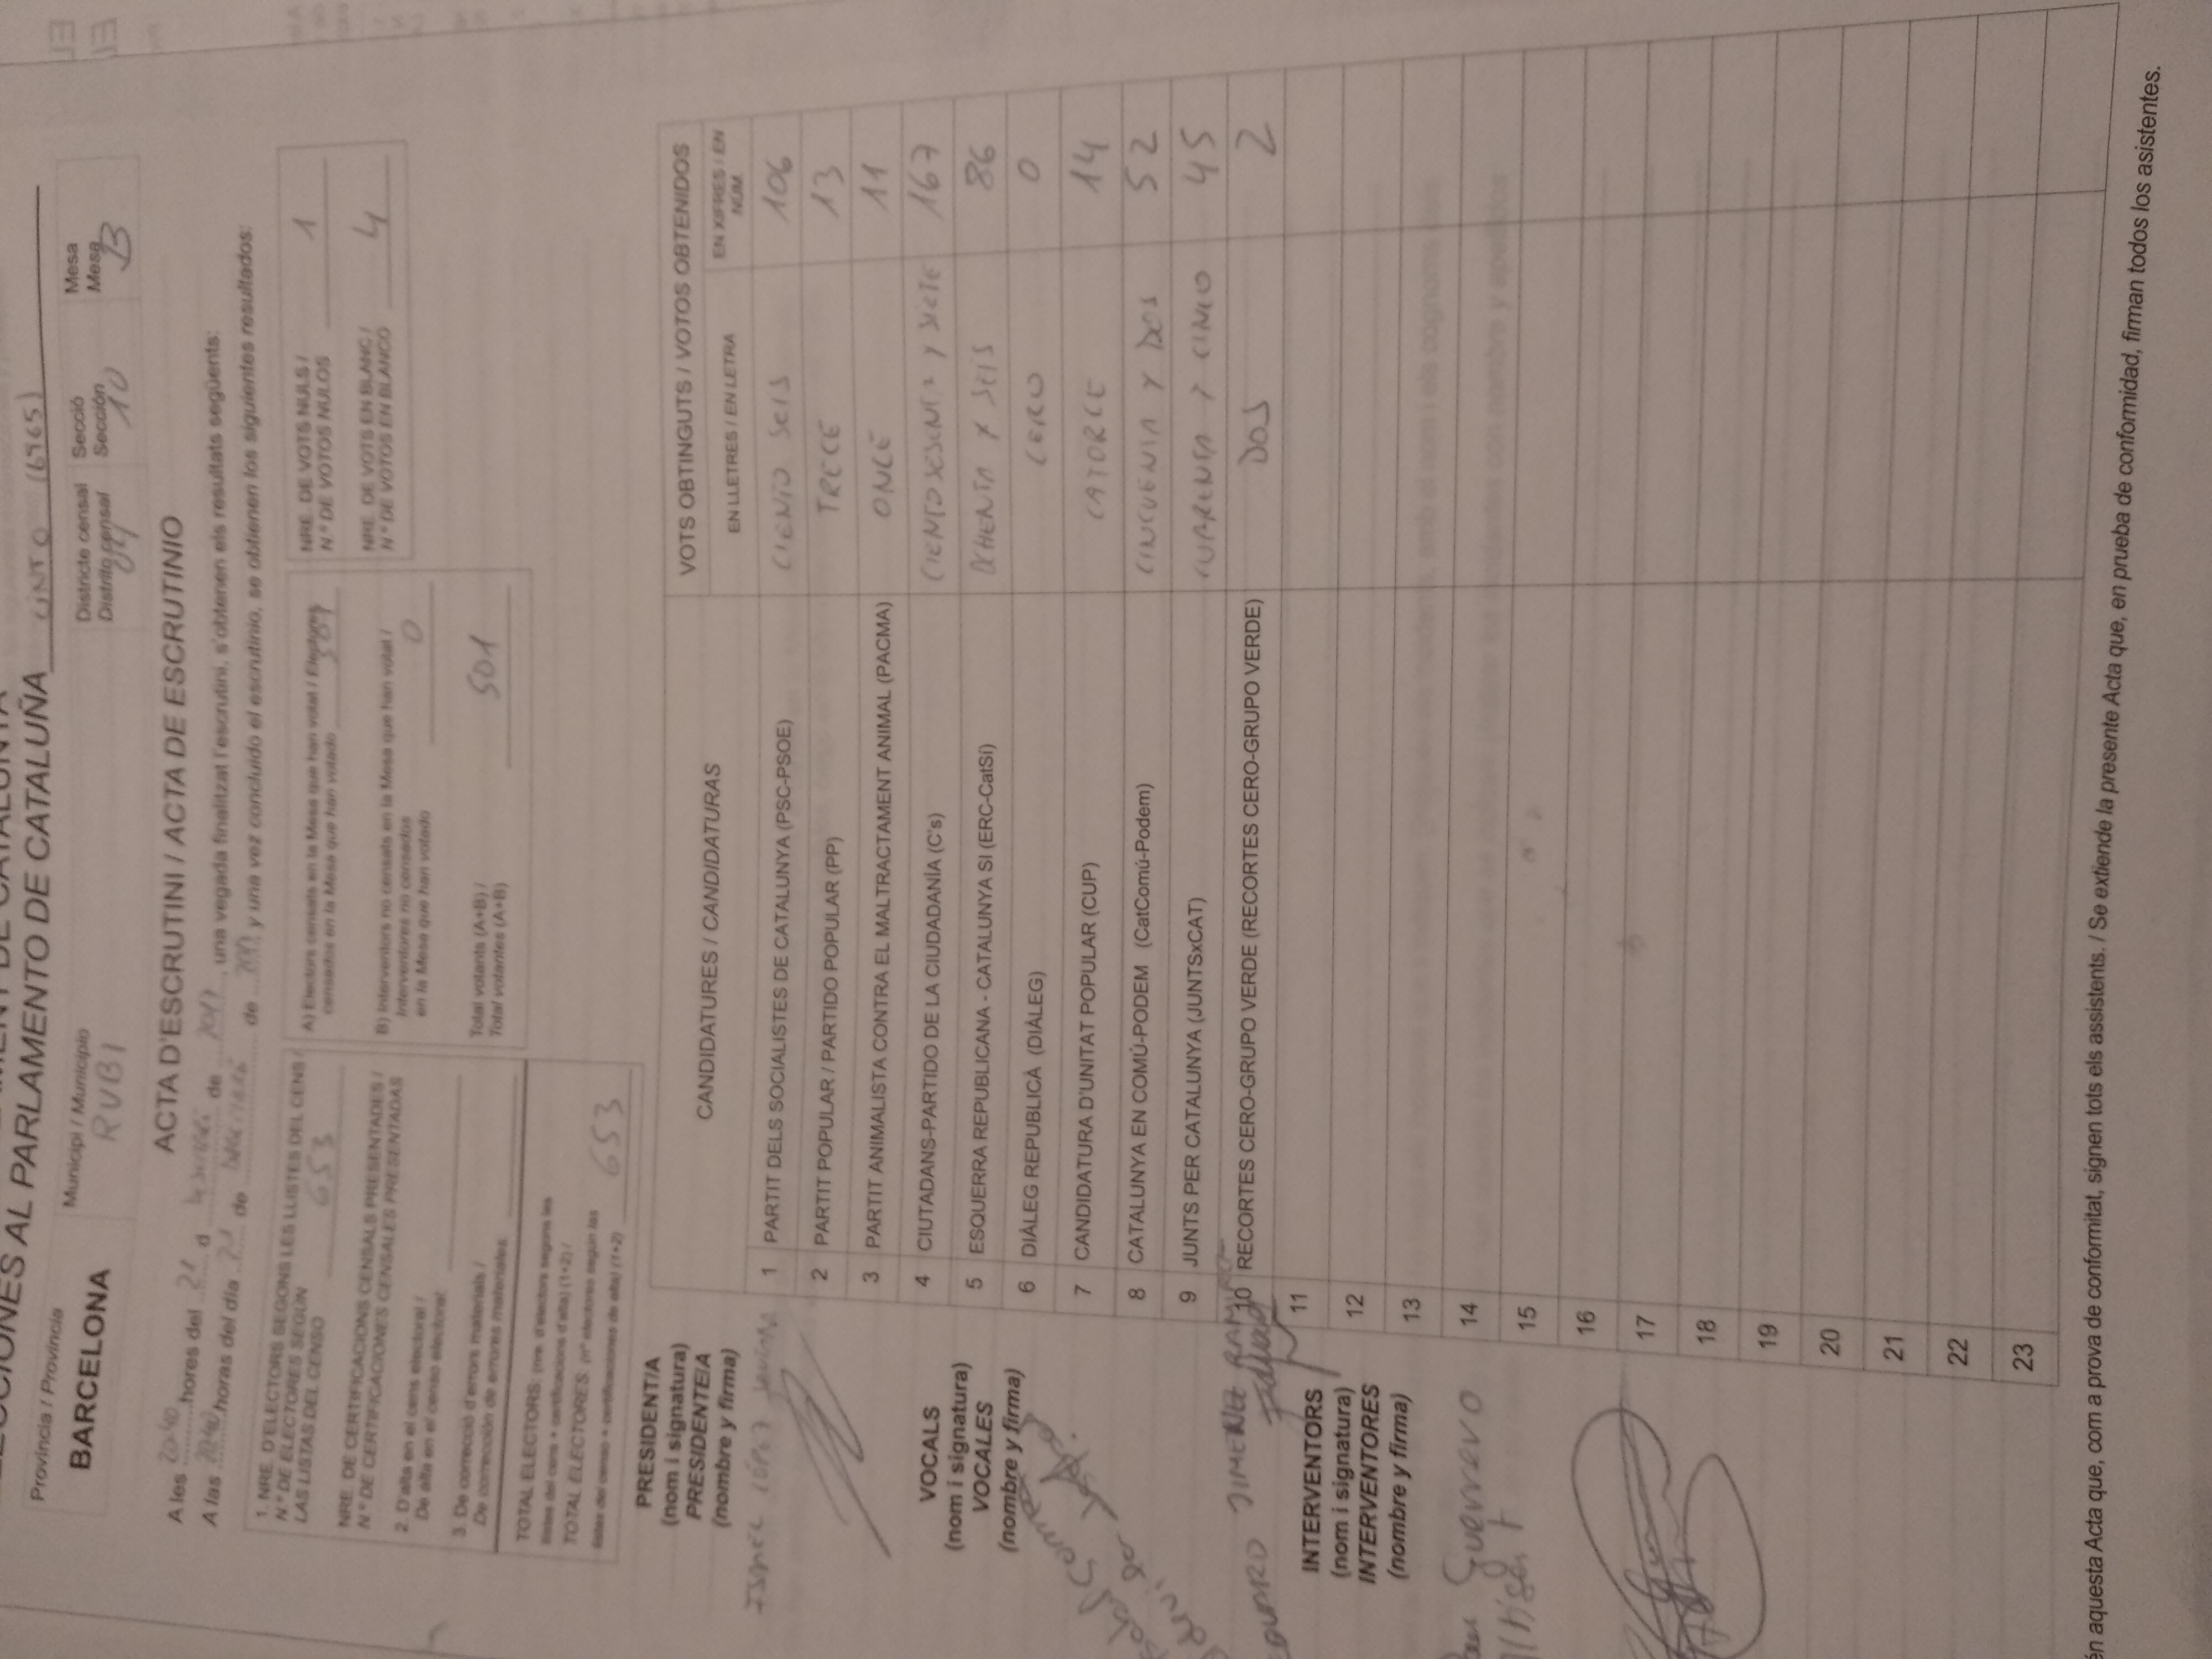 ELECCIONES AL PARLAMENTO DE CATALUÑA CINTO (6965)
Provincia / Provincia
BARCELONA
Municipi / Municipio
RUBI
Districte censal
Distrito censal
04
Secció
Sección
10
Mesa
Mesa
B
ACTA D'ESCRUTINI / ACTA DE ESCRUTINIO
A les 20:40 hores del 21 d de 2017, una vegada finalitzat l'escrutini, s'obtenen els resultats següents:
A las 20:40 horas del día 21 de de y una vez concluido el escrutinio, se obtienen los siguientes resultados:
1. NRE. D'ELECTORS SEGONS LES LLISTES DEL CENS /
N.º DE ELECTORES SEGÚN
LAS LISTAS DEL CENSO 653
NRE. DE CERTIFICACIONS CENSALS PRESENTADES /
N.º DE CERTIFICACIONES CENSALES PRESENTADAS
2. D'alta en el cens electoral /
De alta en el censo electoral:
3. De correcció d'errors materials /
De corrección de errores materiales:
TOTAL ELECTORS: (nre. d'electors segons les
llistes del cens + certificacions d'alta) (1+2) /
TOTAL ELECTORES: (nº electores según las
listas del censo + certificaciones de alta) (1+2) 653
A) Electors censats en la Mesa que han votat / Electores
censados en la Mesa que han votado 501
B) Interventors no censats en la Mesa que han votat /
Interventores no censados
en la Mesa que han votado 0
Total votants (A+B) /
Total votantes (A+B) 501
NRE. DE VOTS NULS /
N.º DE VOTOS NULOS 1
NRE. DE VOTS EN BLANC /
N.º DE VOTOS EN BLANCO 4
PRESIDENT/A
(nom i signatura)
PRESIDENTE/A
(nombre y firma)
LÓPEZ
VOCALS
(nom i signatura)
VOCALES
(nombre y firma)
EDUARD JIMENEZ
INTERVENTORS
(nom i signatura)
INTERVENTORES
(nombre y firma)
Guerrero
Altisent
CANDIDATURES / CANDIDATURAS
VOTS OBTINGUTS / VOTOS OBTENIDOS
EN LLETRES / EN LETRA
EN XIFRES / EN
NÚM.
1 PARTIT DELS SOCIALISTES DE CATALUNYA (PSC-PSOE) CIENTO SEIS 106
2 PARTIT POPULAR / PARTIDO POPULAR (PP) TRECE 13
3 PARTIT ANIMALISTA CONTRA EL MALTRACTAMENT ANIMAL (PACMA) ONCE 11
4 CIUTADANS-PARTIDO DE LA CIUDADANÍA (C's) CIENTO SESENTA Y SIETE 167
5 ESQUERRA REPUBLICANA - CATALUNYA SI (ERC-CatSí) OCHENTA Y SEIS 86
6 DIÀLEG REPUBLICÀ (DIÀLEG) CERO 0
7 CANDIDATURA D'UNITAT POPULAR (CUP) CATORCE 14
8 CATALUNYA EN COMÚ-PODEM (CatComú-Podem) CINCUENTA Y DOS 52
9 JUNTS PER CATALUNYA (JUNTSxCAT) CUARENTA Y CINCO 45
10 RECORTES CERO-GRUPO VERDE (RECORTES CERO-GRUPO VERDE) DOS 2
11
12
13
14
15
16
17
18
19
20
21
22
23
én aquesta Acta que, com a prova de conformitat, signen tots els assistents. / Se extiende la presente Acta que, en prueba de conformidad, firman todos los asistentes.